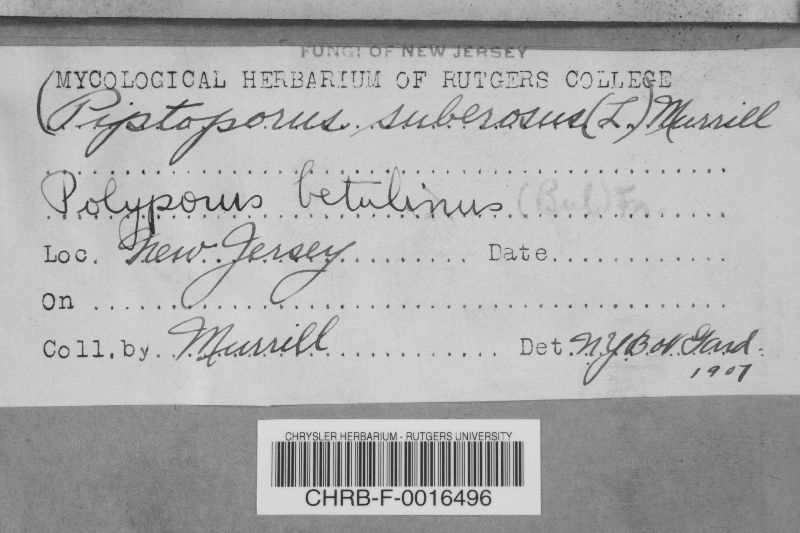 FUNGI OF NEW JERSEY
MYCOLOGICAL HERBARIUM OF RUTGERS COLLEGE
(Piptoporus suberosus (L.) Murrill
Polyporus betulinus (Bul) Fr.
Loc. New Jersey Date
On
Coll. by Murrill Det. N.Y. Bot. Gard.
1907
CHRYSLER HERBARIUM - RUTGERS UNIVERSITY
CHRB-F-0016496